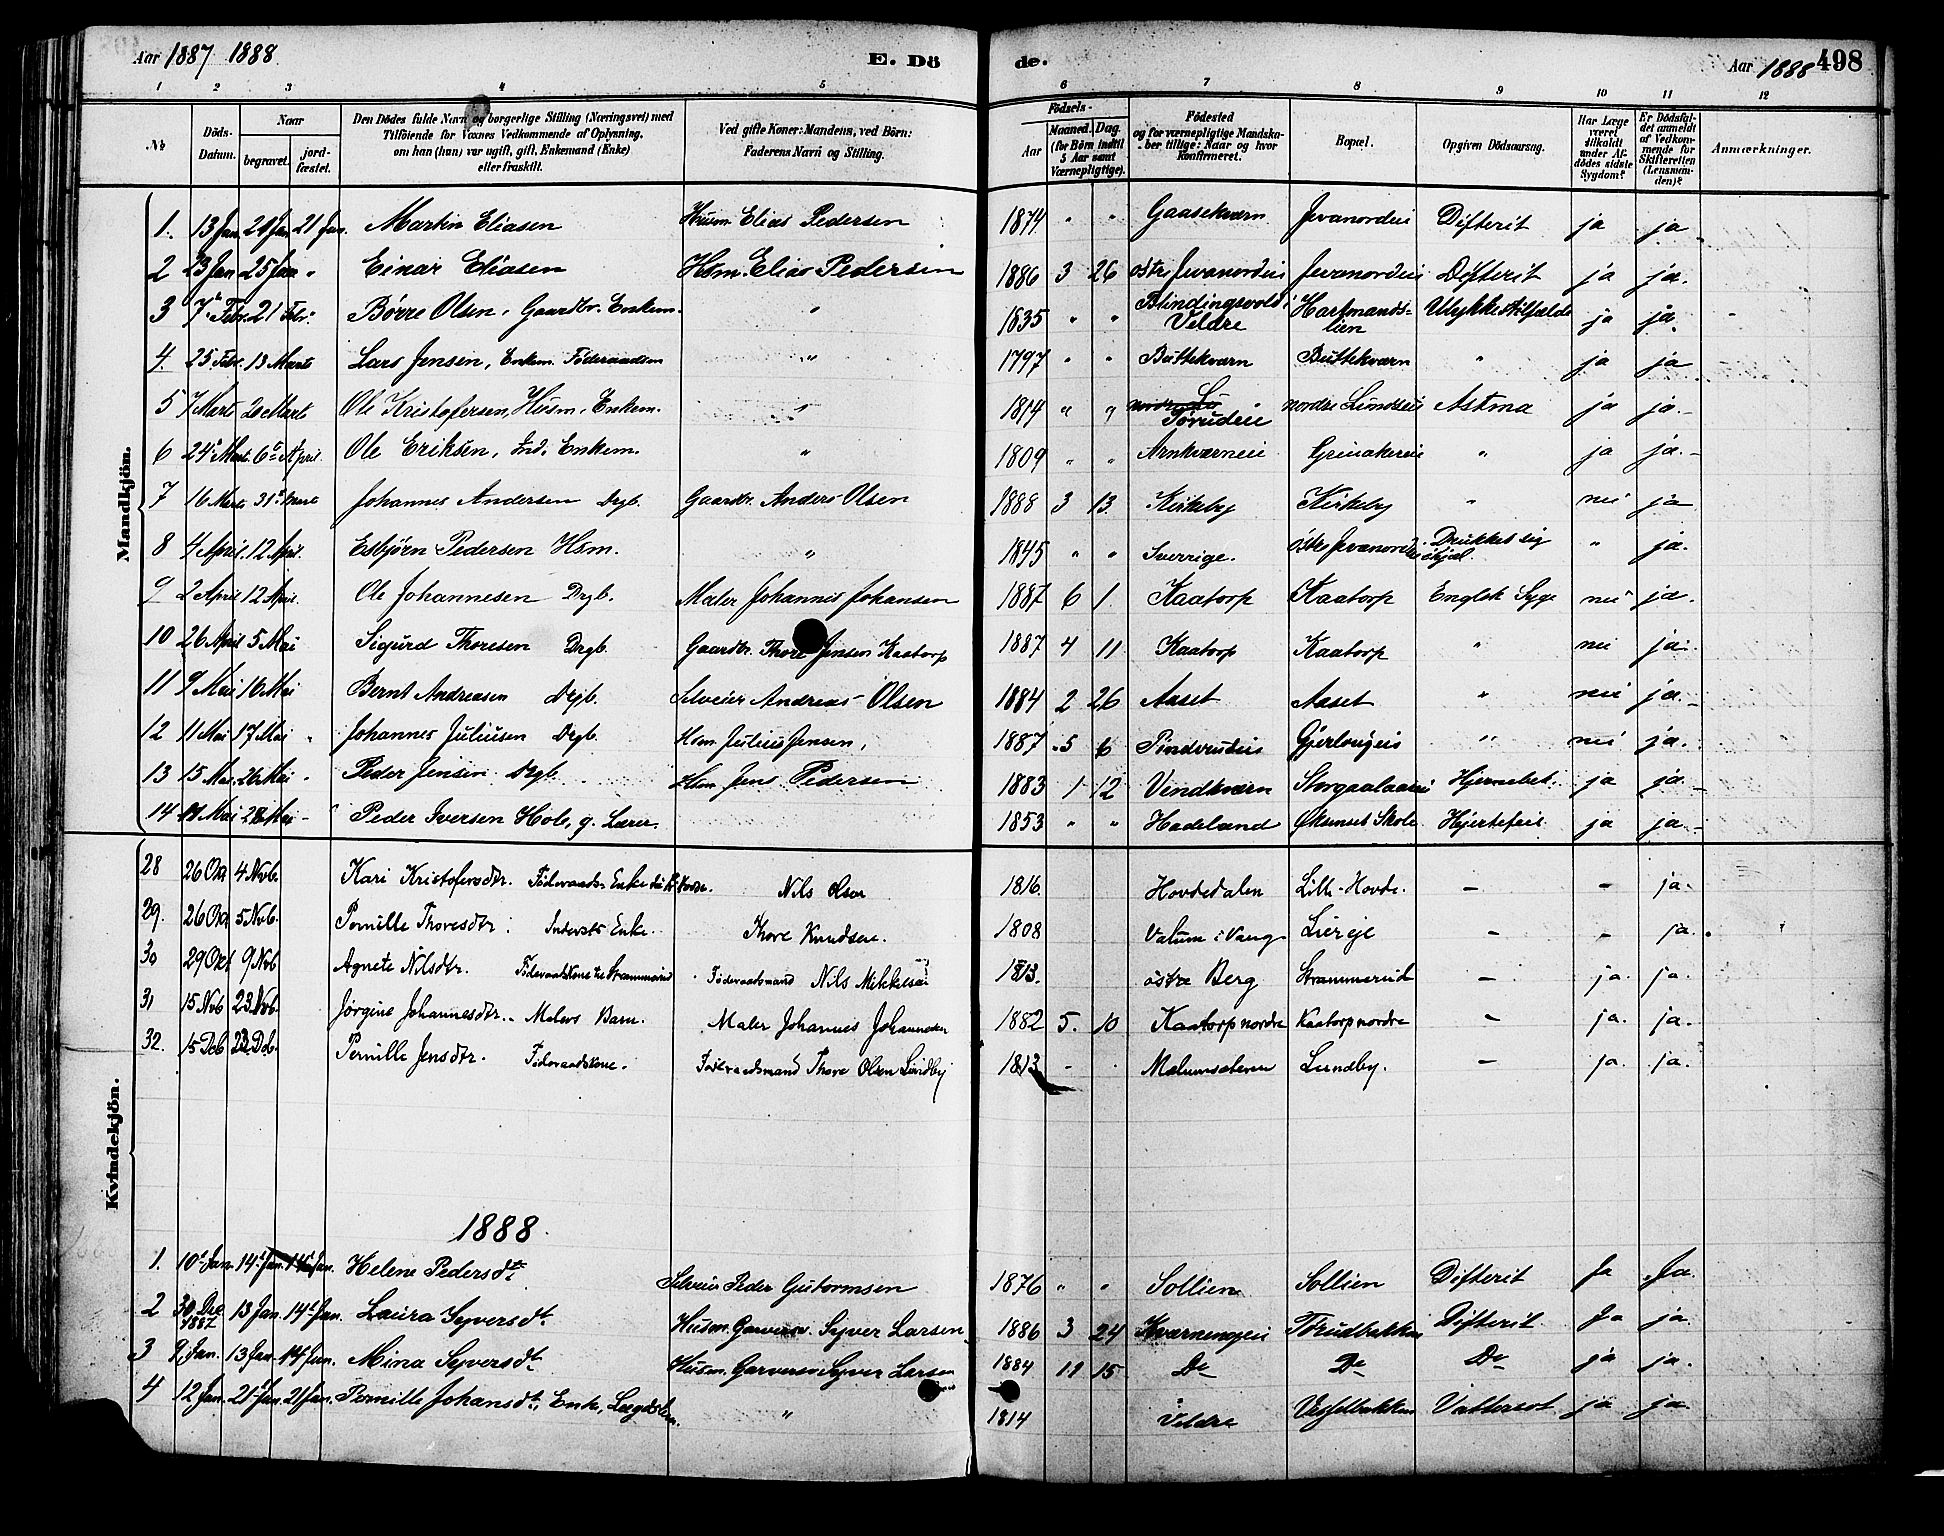 Aar 1887 1888. E. Dö de. Aar 1888 498
1 2 3 4 5 6 7 8 9 10 11 12
No Döds-Datum. Naar begravet. jord-fæstet. Den Dödes fulde Navn og borgerlige Stilling (Næringsvei) med Tilföiende for Voxnes Vedkommende af Oplysning, om han (hun) var ugift, gift, Enkemand (Enke) eller fraskilt. Ved gifte Koner: Mandens, ved Börn: Faderens Navn og Stilling. Födsels- Aar Maaned. Dag. (for Börn indtil 5 Aar samt Værnepligtige). Födested og for værnepligtige Mandskaber tillige: Naar og hvor konfirmeret. Bopæl. Opgiven Dödsaarsag. Har Læge været tilkaldt under Afdödes sidste Sygdom? Er Dödsfaldet anmeldt af Vedkommende for Skifteretten (Lensmanden)? Anmærkninger.
Mandkjön.
1. 13 Jan 20 Jan 21 Jan. Martin Eliasen Husm. Elias Pedersen 1874 " " Gaasekværn Jevanordeie Difterit ja ja
2 23 Jan 25 Jan " Einar Eliasen Hsm. Elias Pedersen 1886 3 26 östre Jevanordeie Jevanordeie Difterit ja ja.
3 7 Febr. 21 Febr. Börre Olsen, Gaardbr. Enkem. " 1835 " " Blindingsvold i Veldre Hartmands-lien Ulykkestilfælde ja ja.
4. 25 Febr. 13 Marts Lars Jensen, Enkem. Föderaadsm " 1797 " " Buttekværn Buttekværn " ja ja
5 7 Marts 20 Marts Ole Kristofersen, Husm, Enkem. " 1814 " " Törudeie nordre Lundseie Astma ja ja.
6 24 Mart. 6 April. Ole Eriksen, Ind., Enkem. " 1809 " " Arnkværneie Grinakereie " ja ja.
7 16 Marts 31 Marts Johannes Andersen Drgb. Gaardbr. Anders Olsen 1888 3 13. Kirkeby Kirkeby " nei ja
8 4 April. 12 April. Esbjörn Pedersen Hsm. " 1845 " " Sverrige. östre Jevanordeie Drukket sig ihjæl. " ja.
9 2 April 12 April. Ole Johannesen Drgb. Maler Johannes Johansen 1887 6 1. Kaatorp Kaatorp Englsk Syge nei ja.
10 26 April 5 Mai Sigurd Thoresen Drgb. Gaardbr. Thore Jensen Kaatorp 1887 4 11 Kaatorp Kaatorp " nei ja.
11 9 Mai 16 Mai Bernt Andreasen Drgb. Selveier Andreas Olsen 1884 2 26 Aaset Aaset " nei ja.
12 11 Mai 17 Mai " Johannes Juliusen Drgb. Hsm Julius Jensen, 1887 5 6 Gjerlugeie " nei ja.
13 15 Mai 26 Mai " Peder Jensen Drgb. Hsm Jens Pedersen 1883 1 12 Vendkværn Hjernebet. ja ja
14 Mai 28 Mai " Peder Iversen Hole, g. Lærer. 1853 " " Hadeland Öksnus Skole Hjertefeil ja ja
Kvindekjön.
28 26 Okt 4 Novb. Kari Kristofersdtr. Föderaads Enke Nils Olsen 1816. Hovdedalen Lille-Hovde. - - ja.
29. 26 Okt 5 Novb. Pernille Thoresdtr. Inderste Enke. Thore Knudsen. 1808 Valum i Vang Liereje - - ja.
30 29 Okt 9 Nvb Agnete Nilsdtr. Föderaadsmand Nils Mikkelsen 1813. östre Berg Strammerud - ja. ja.
31 15 Nvb 23 Nvb. Jørgine Johannesdtr. Malers Barn. Maler Johannes Johannesen 1882 5. 10 Kaatorp nordre Kaatorp nordre - ja. ja.
32. 15 Deb 23 Deb. Pernille Jensdtr. Föderaadskone. Föderaadsmand Thore Olsen Lundby 1813 - Lundby. - ja. ja.
1888.
1. 10 Jan. 14 Jan. 14 Jan. Helene Pedersdt. Selveier Peder Gutormsen 1876 " " Sollien Sollien Difterit Ja Ja.
2 30 Dec 1887 13 Jan. 14 Jan. Laura Syversdt. Husm. Garveren Syver Larsen 1886 3 24 Törudbakken Difterit. Ja ja.
3 9 Jan. 13 Jan. 14 Jan. Mina Syversdt Husm. Garveren Syver Larsen 1884 11 15. Do Do Do ja ja.
4 12 Jan. 21 Jan. 21 Jan. Pernille Johansdt., Enke, Lægdslem. " 1814 Veldre Vesselbakken Vattersot ja ja